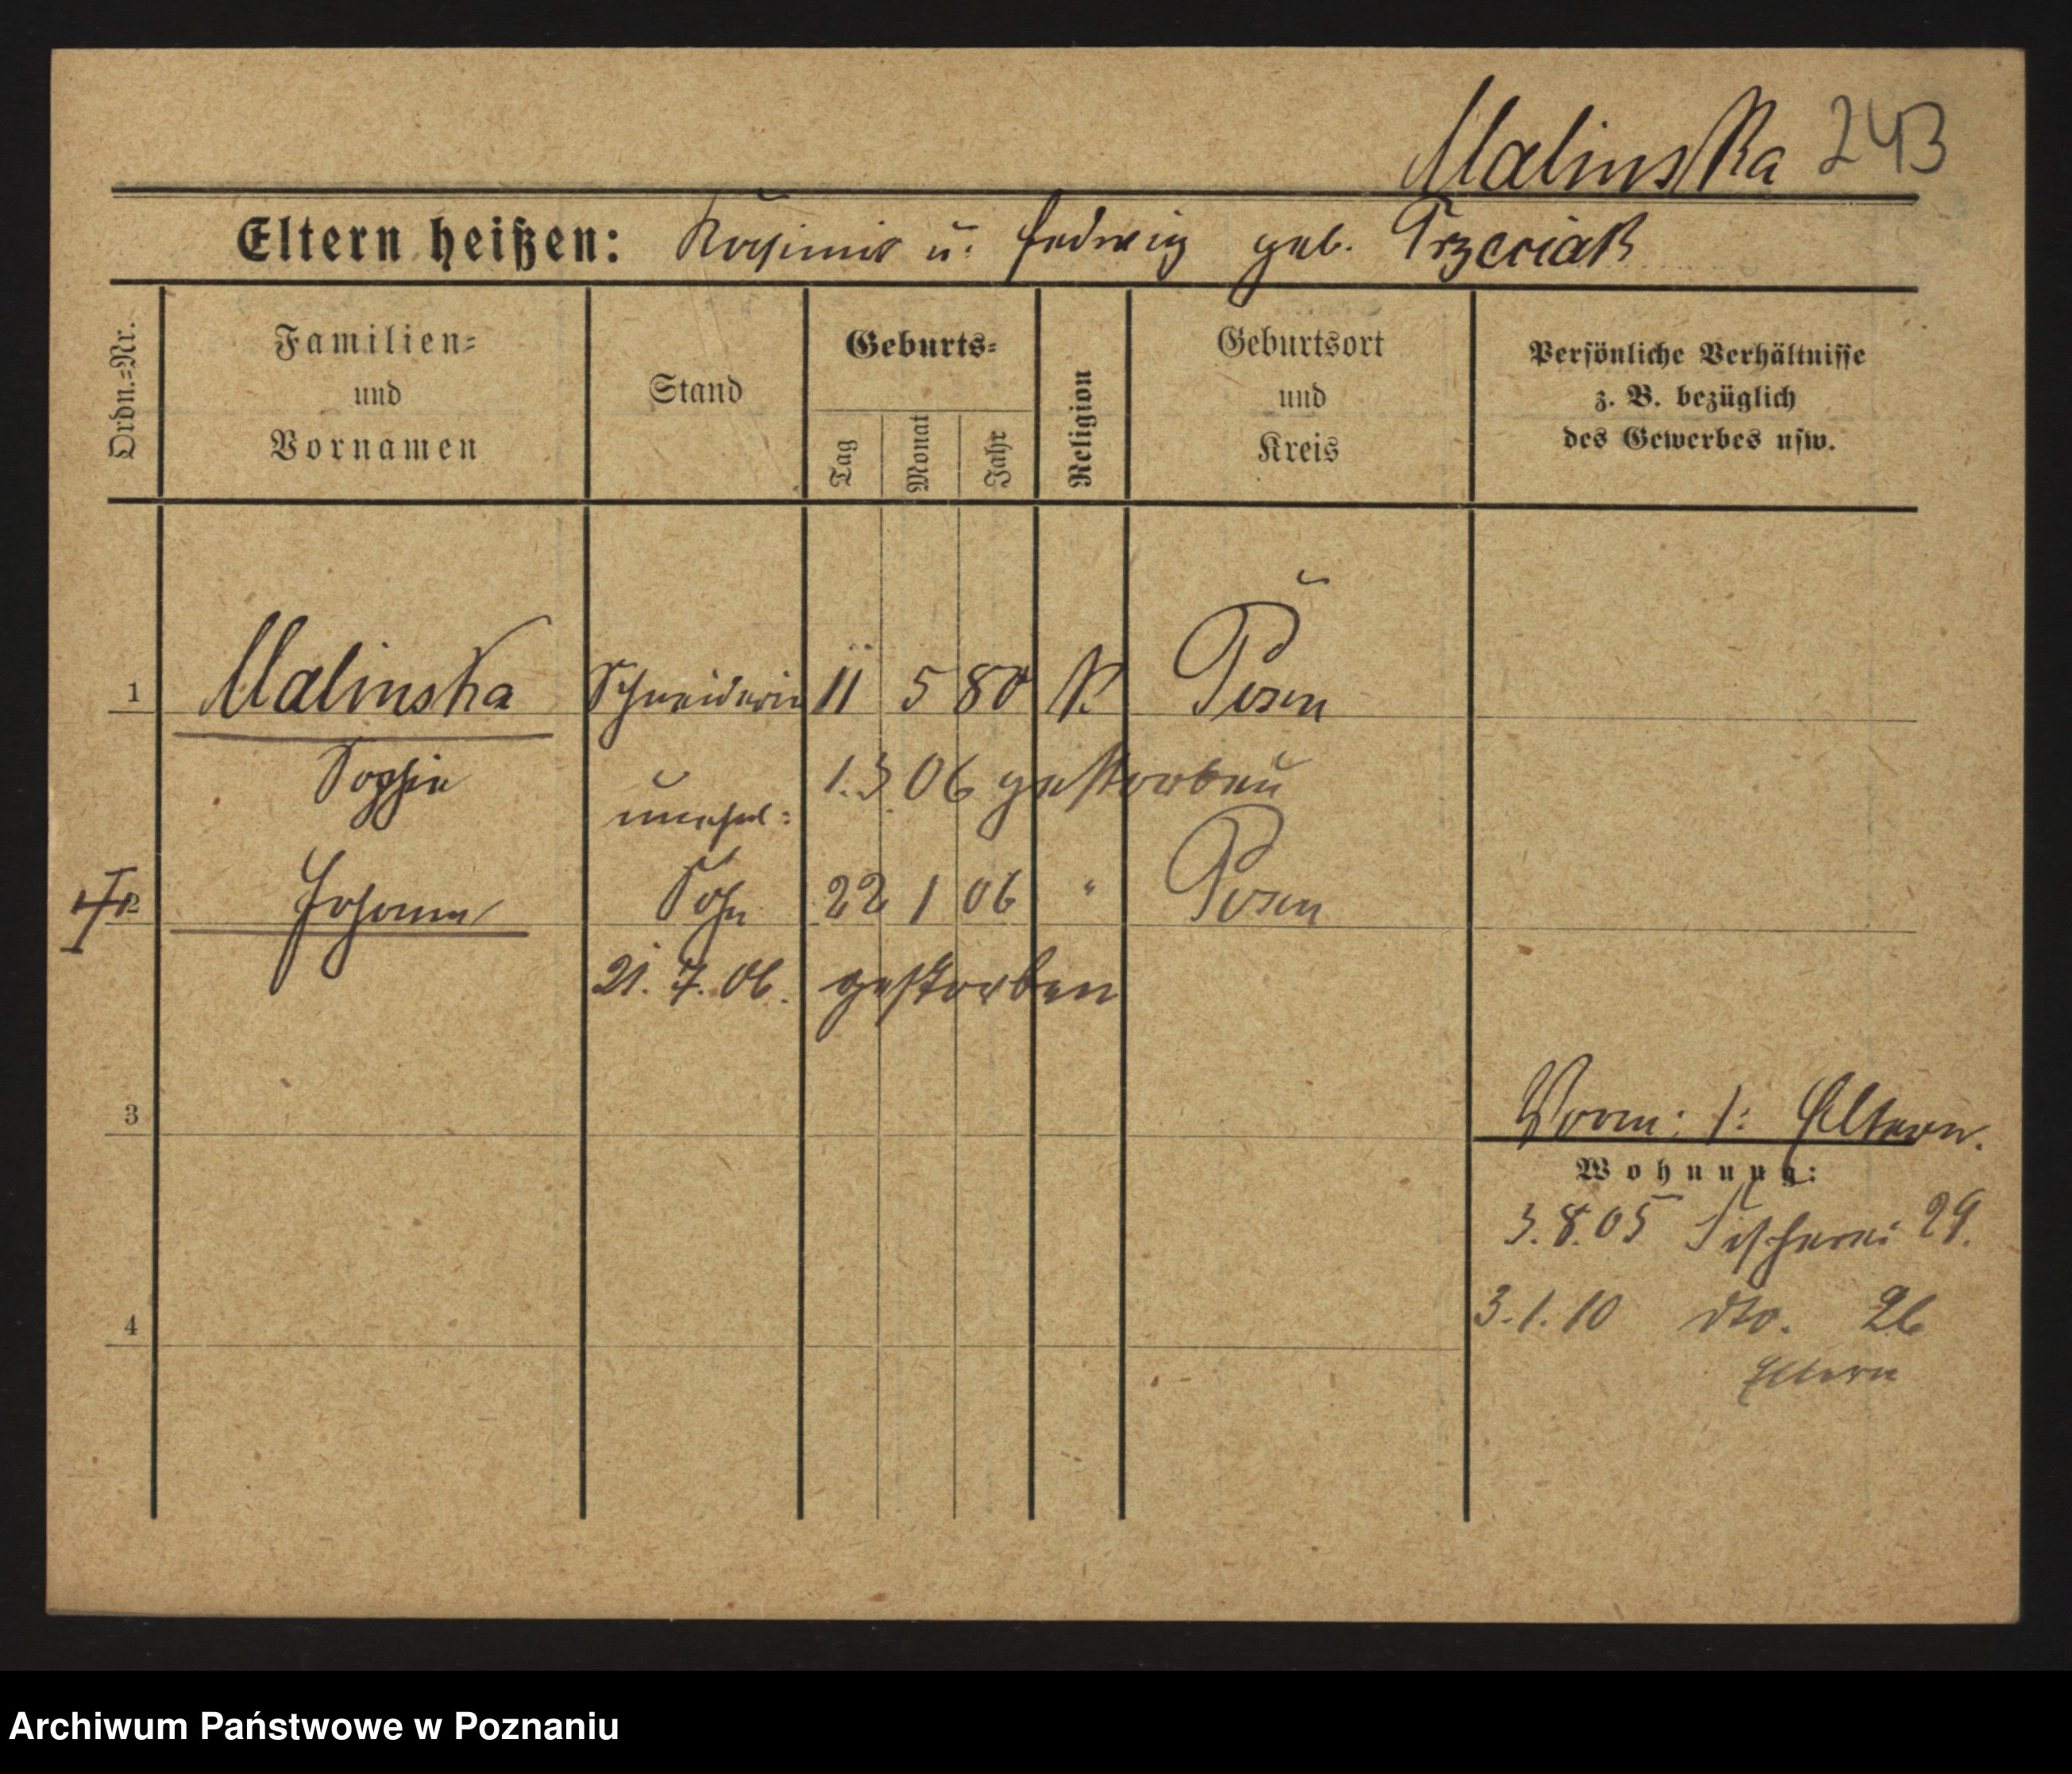 Malinska 243
Eltern heißen: Kasimir u. Hedwig geb. Trzeciak
Ordn.=Nr.
Familien=
und
Vornamen
Stand
Geburts=
Tag
Monat
Jahr
Religion
Geburtsort
und
Kreis
Persönliche Verhältnisse
z. B. bezüglich
des Gewerbes usw.
1 Malinska Schneiderin 11 5 80 K. Posen
Sophie 1.3.06 gestorben
unehel:
2 Johann Sohn 22 1 06 " Posen
21. 7. 06. gestorben
3
Vorm: 1: Eltern.
Wohnung:
3.8.05 Fischerei 29.
3.1.10 dto. 26
4
Eltern
Archiwum Państwowe w Poznaniu